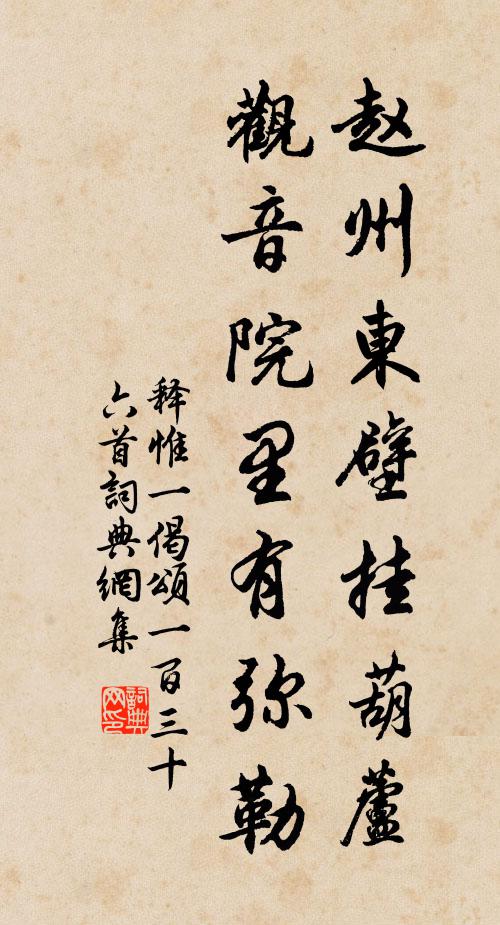 赵州東壁挂葫蘆
觀音院里有弥勒
释惟一偈頌一百三十
六首詞典網集
詞典网印